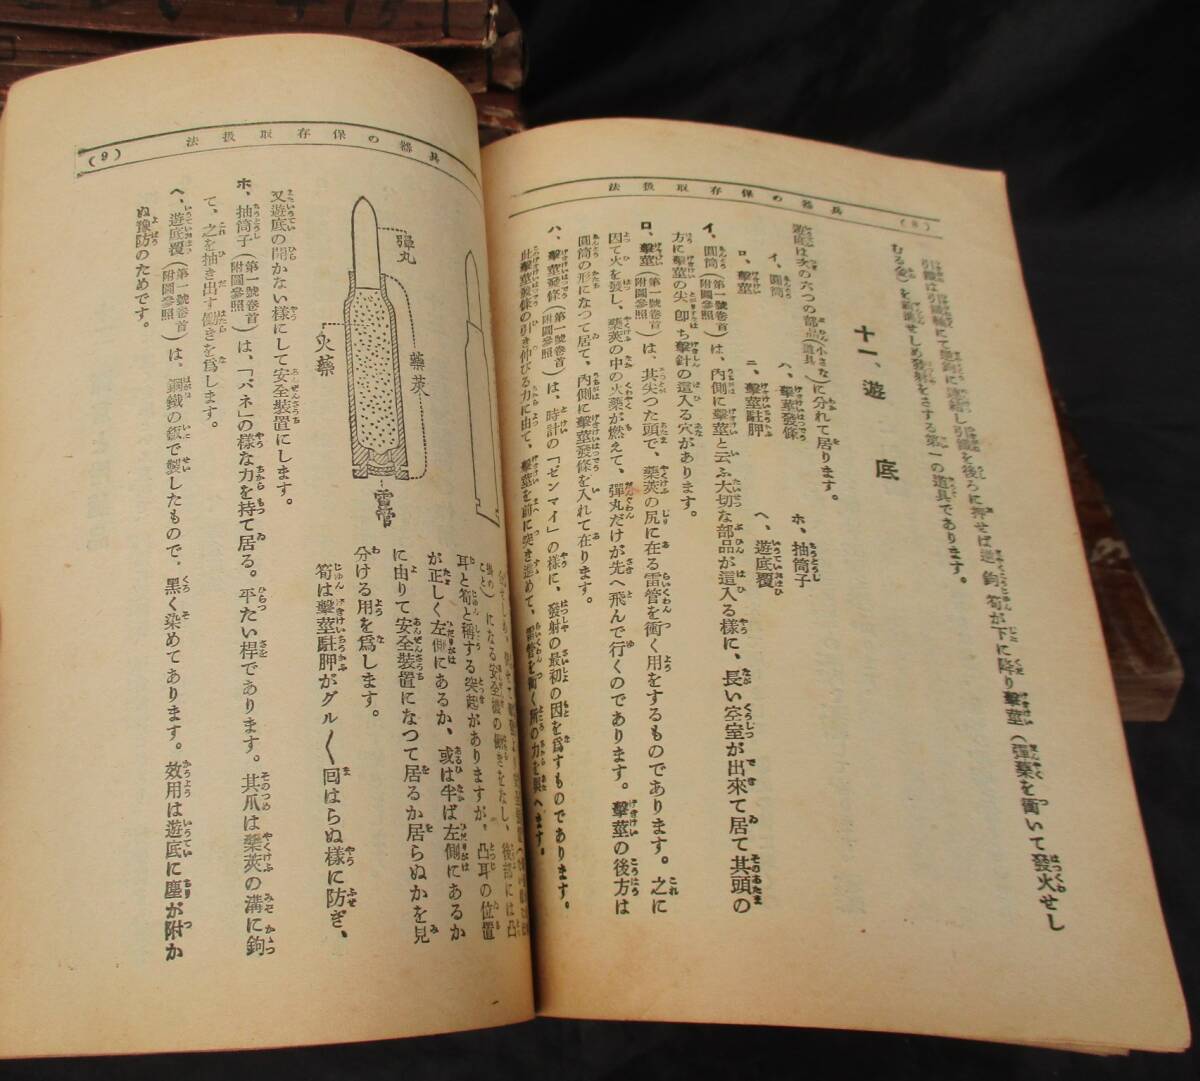 (8)
兵器の保存取扱法
むる金）を前進せしめ發射をさする第一の道具であります。
十一、遊底
遊底は次の六つの部品（小さな道具）に分れて居ります。
イ、圓筒
ロ、擊莖
ハ、擊莖發條
ニ、擊莖駐胛
ホ、抽筒子
ヘ、遊底覆
イ、圓筒（第一號卷首附圖參照）は、內側に擊莖と云ふ大切な部品が這入る樣に、長い空室が出來て居て其頭の
方に擊莖の尖、卽ち擊針の這入る穴があります。
ロ、擊莖（第一號卷首附圖參照）は、其尖つた頭で、藥莢の尻に在る雷管を衝く用をするものであります。之に
因て火を發し、藥莢の中の火藥が燃えて、彈丸だけが先へ飛んで行くのであります。擊莖の後方は
圓筒の形になつて居て、內側に擊莖發條を入れて在ります。
ハ、擊莖發條（第一號卷首附圖參照）は、時計の「ゼンマイ」の樣に、發射の最初の因を爲すものであります。
此擊莖發條の引き伸びる力に由て、擊莖を前に突き進めて、雷管を衝く所の力を與へます。
(9)
兵器の保存取扱法
彈丸
藥莢
火藥
雷管
になる安全機の働きをなし、後部には凸
耳と筍と稱する突起がありますが。凸耳の位置
が正しく左側にあるか、或は半ば左側にあるか
に由りて安全裝置になつて居るか居らぬかを見
分ける用を爲します。
筍は擊莖駐胛がグル〳〵囘はらぬ樣に防ぎ、
又遊底の開かない樣にして安全裝置にします。
ホ、抽筒子（第一號卷首附圖參照）は、「バネ」の樣な力を持て居る。平たい桿であります。其爪は藥莢の溝に鉤
て、之を抽き出す働きを爲します。
ヘ、遊底覆（第一號卷首附圖參照）は、鋼鐵の鈑で製したもので、黑く染めてあります。效用は遊底に塵が附か
ぬ豫防のためです。